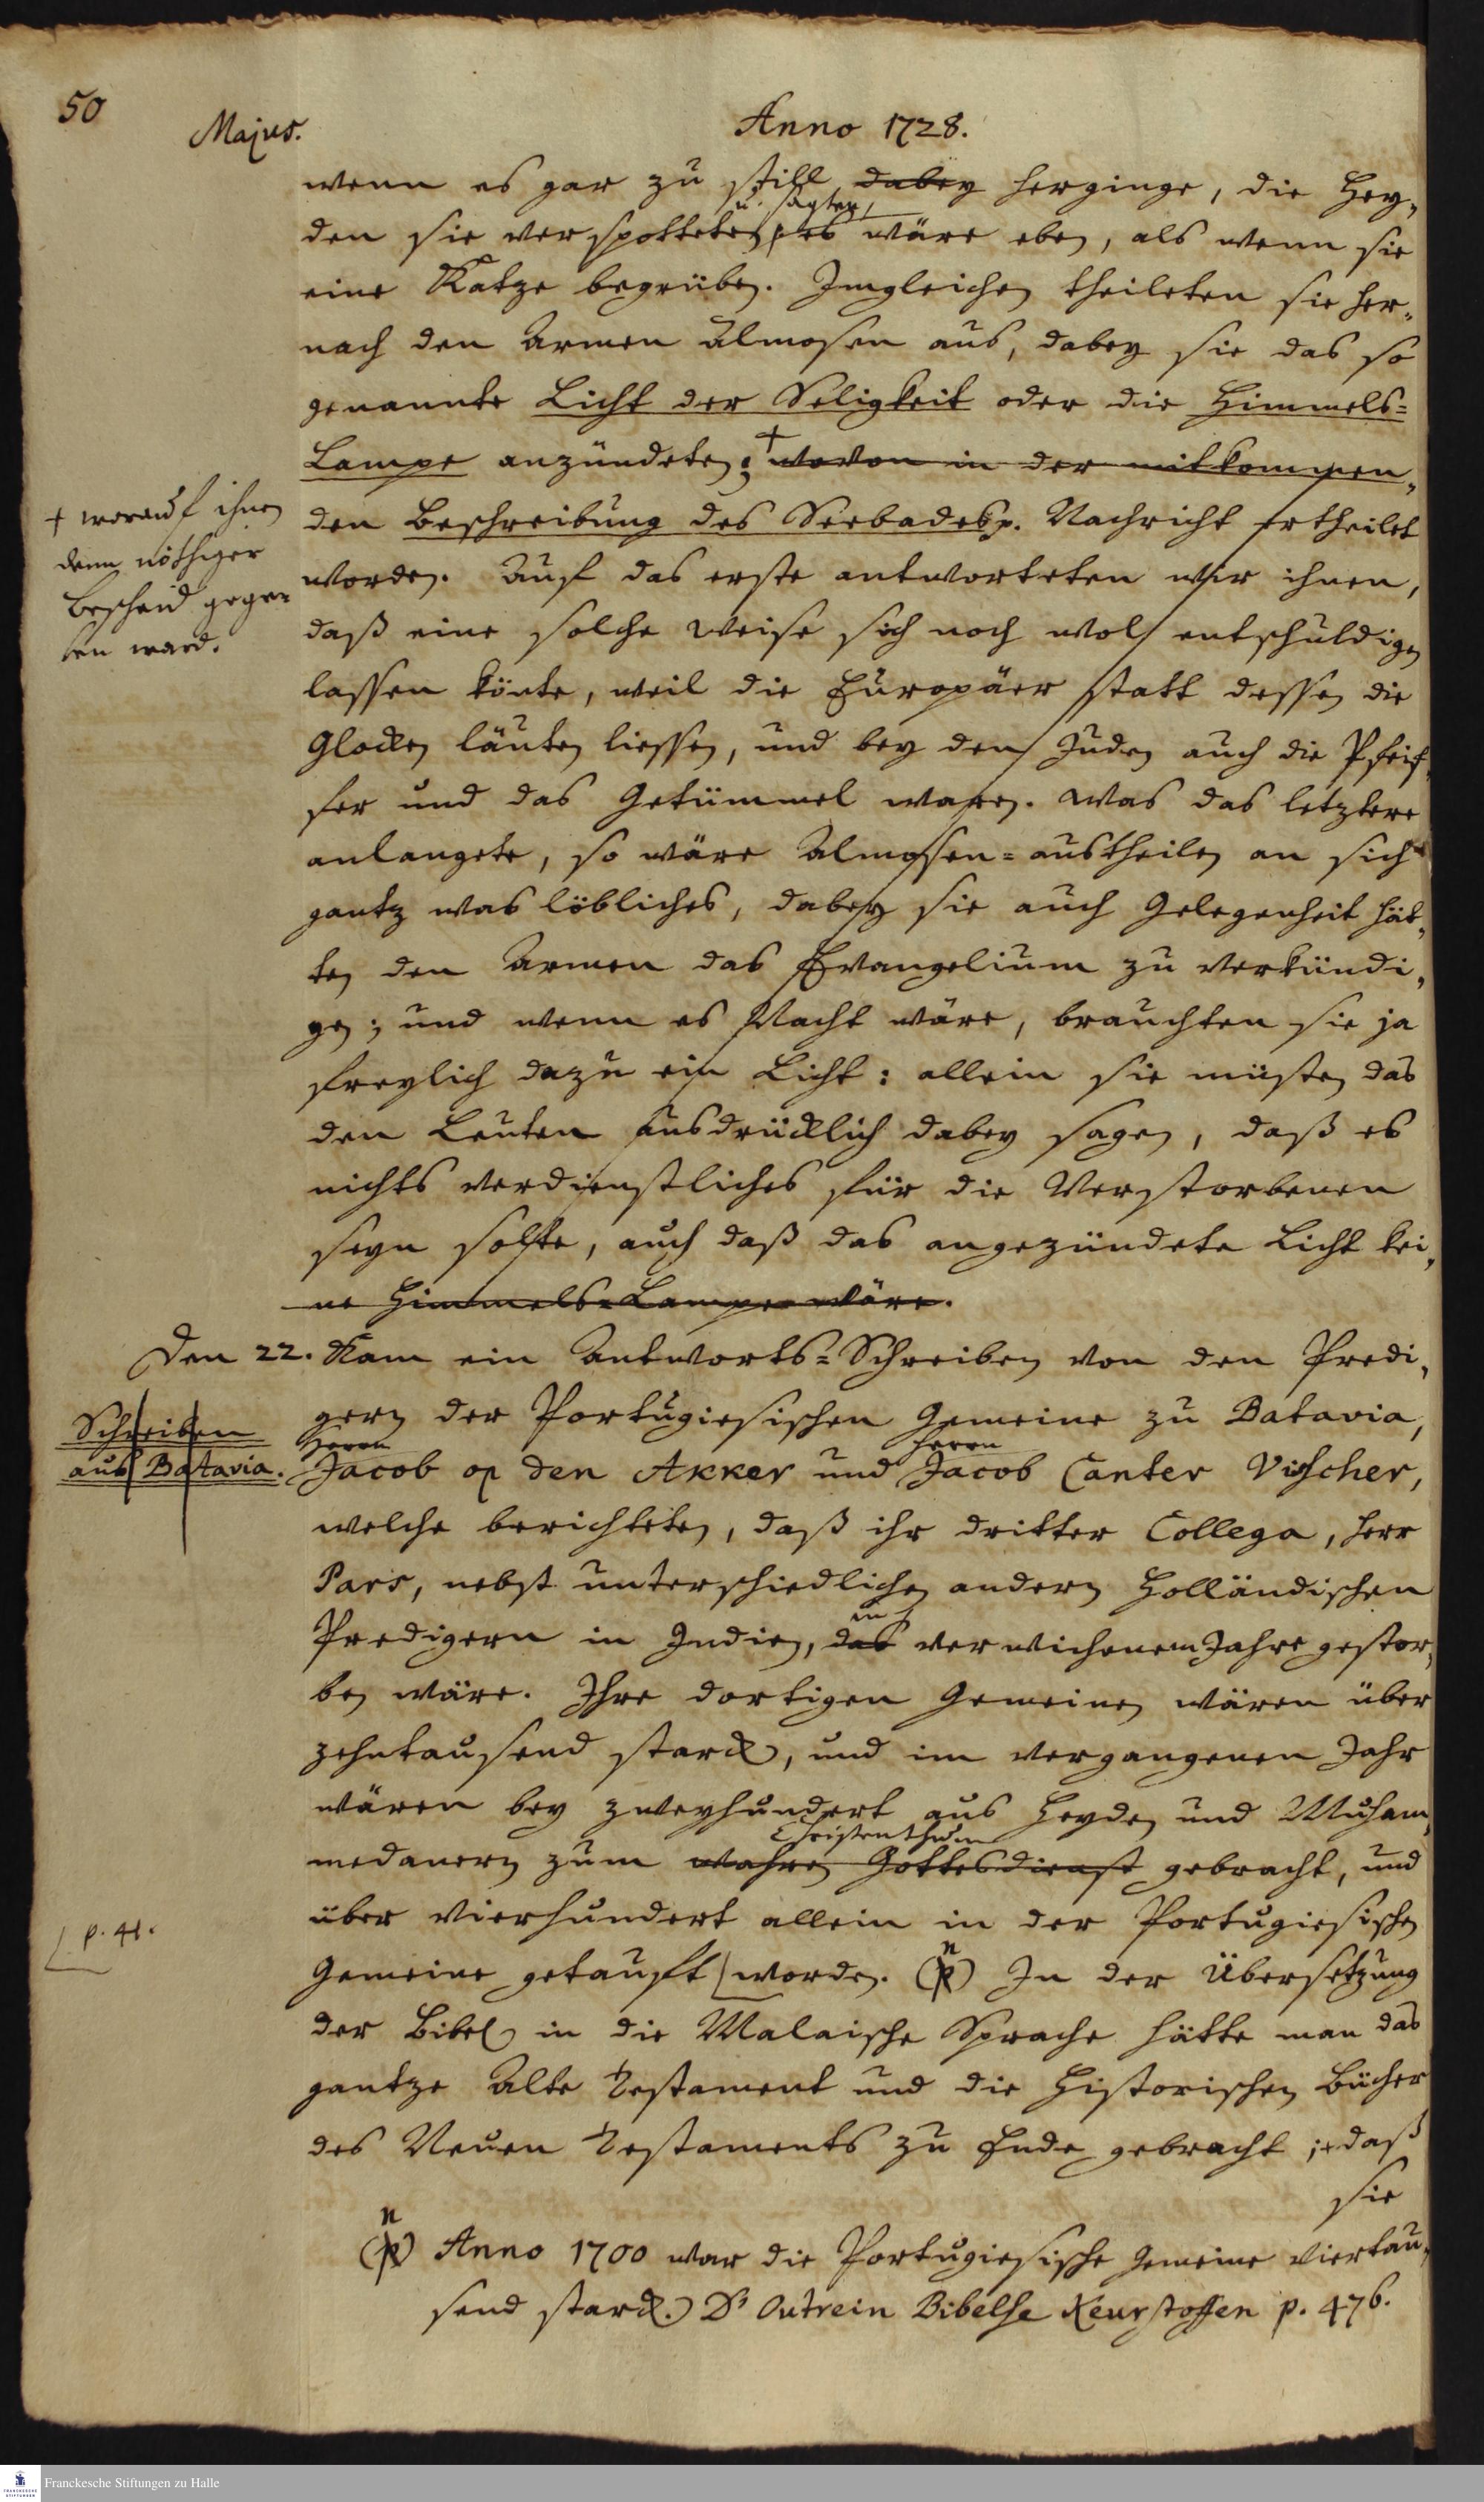 50
Majus.
Anno 1728.
wenn es gar zu still dabey herginge, die Hey-
u. sagten,
den sie verspotteten, es wäre eben, als wenn sie
eine Katze begrüben. Imgleichen theileten sie her-
nach den Armen Almosen aus, dabey sie das so
genannte Licht der Seligkeit oder die Himmels-
Lampe anzündeten; + wovon in der mitkommen-
+ worauf ihnen
denn nöthiger
Bescheid gege-
ben ward.
den Beschreibung des Seebades p. Nachricht ertheilet
worden. Auf das erste antworteten wir ihnen,
daß eine solche Weise sich noch wol entschuldigen
lassen könte, weil die Europäer statt dessen die
Glocken läuten liessen, und bey den Juden auch die Pfeif-
fer und das Getümmel waren. Was das letztere
anlangete, so wäre Almosen-austheilen an sich
gantz was löbliches, dabey sie auch Gelegenheit hät-
ten den Armen das Evangelium zu verkündi-
gen; und wenn es Nacht wäre, brauchten sie ja
freylich dazu ein Licht: allein sie müsten das
den Leuten ausdrücklich dabey sagen, daß es
nichts verdienstliches für die Verstorbenen
seyn solte, auch daß das angezündete Licht kei-
ne Himmels-Lampe wäre.
Den 22. Kam ein Antworts-Schreiben von den Predi-
Schreiben
aus Batavia.
gern der Portugiesischen Gemeine zu Batavia,
Herrn Herrn
Jacob op den Akker und Jacob Canter Visscher,
welche berichteten, daß ihr dritter Collega, Herr
Pars, nebst unterschiedlichen andern Holländischen
im
Predigern in Indien, das verwichenem Jahre gestor-
ben wäre. Ihre dortigen Gemeinen wären über
zehntausend starck, und im vergangenen Jahr
wären bey zweyhundert aus Heyden und Muham-
Christenthum
medanern zum wahren Gottesdienst gebracht, und
über vierhundert allein in der Portugiesischen
p. 41.
Gemeine getaufft worden. (n) In der Übersetzung
der Bibel in die Malaische Sprache hätte man das
gantze Alte Testament und die Historischen Bücher
des Neuen Testaments zu Ende gebracht; daß
sie
(n) Anno 1700 war die Portugiesische Gemeine viertau-
send starck. D' Outrein Bibelse Keurstoffen p. 476.
Franckesche Stiftungen zu Halle